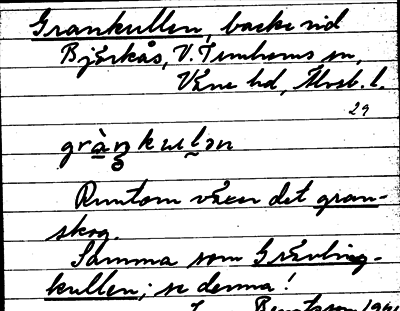 Grankullen, backe vid
Björkås, V. Tunhems sn,
Väne hd, Älvsb. l.
29
gràn̥kulən
Runtom växer det gran-
skog.
Samma som Grävling-
kullen; se denna!
Bengtsson